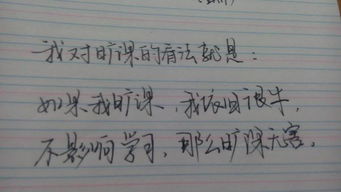 我对旷课的看法就是：
如果我旷课，我该回很牛，
不影响学习，那么旷课无害。